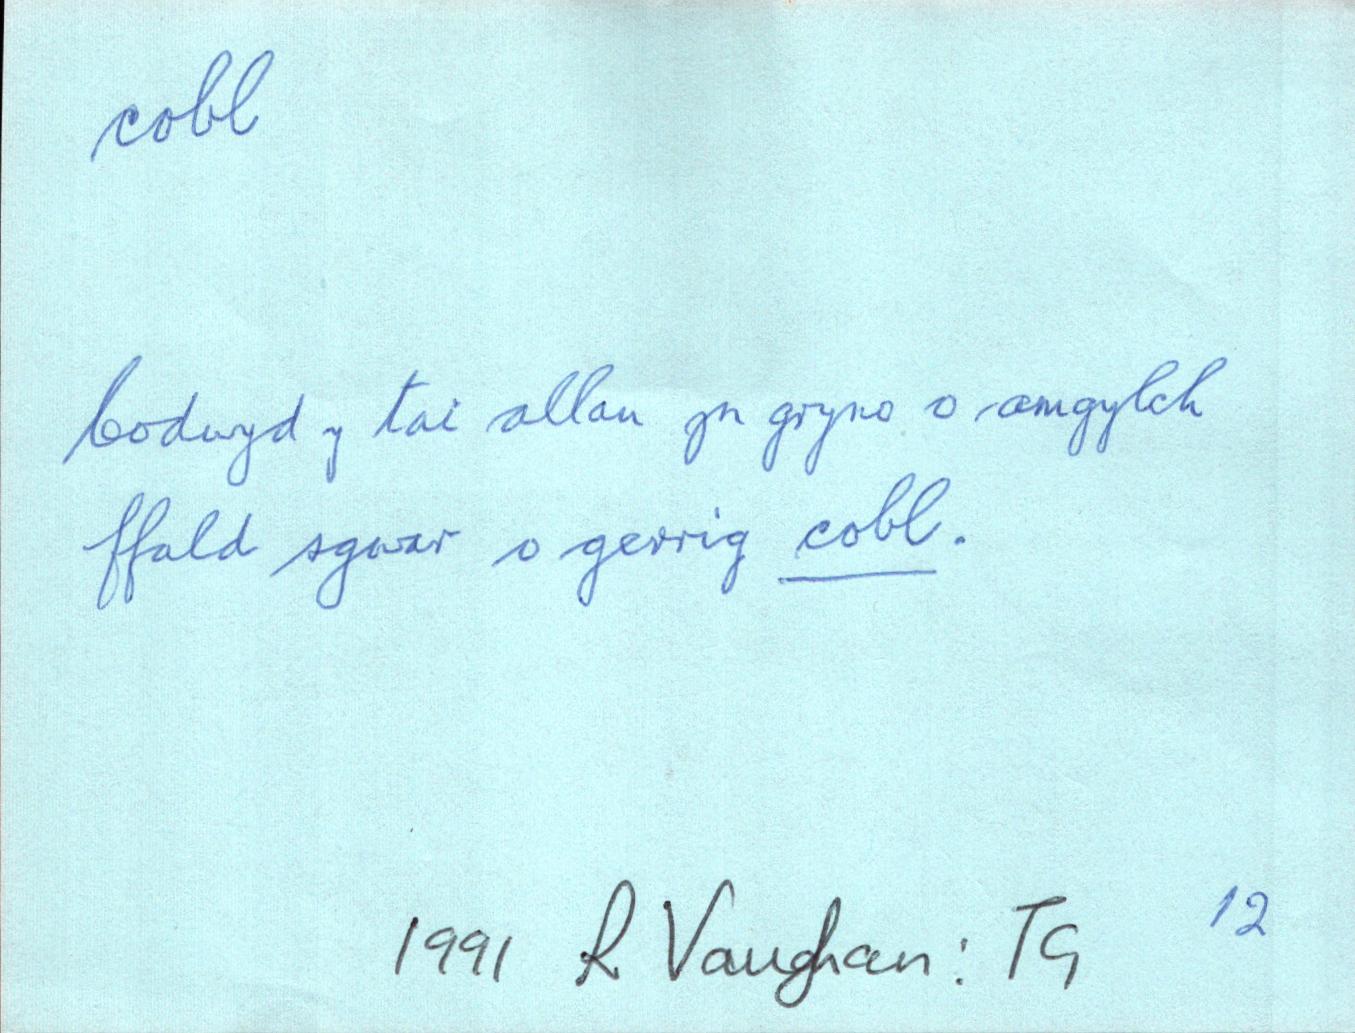 cobl
Codwyd y tai allan yn gryno o amgylch
ffald sgwar o gerrig cobl.
1991 R Vaughan: TG 12